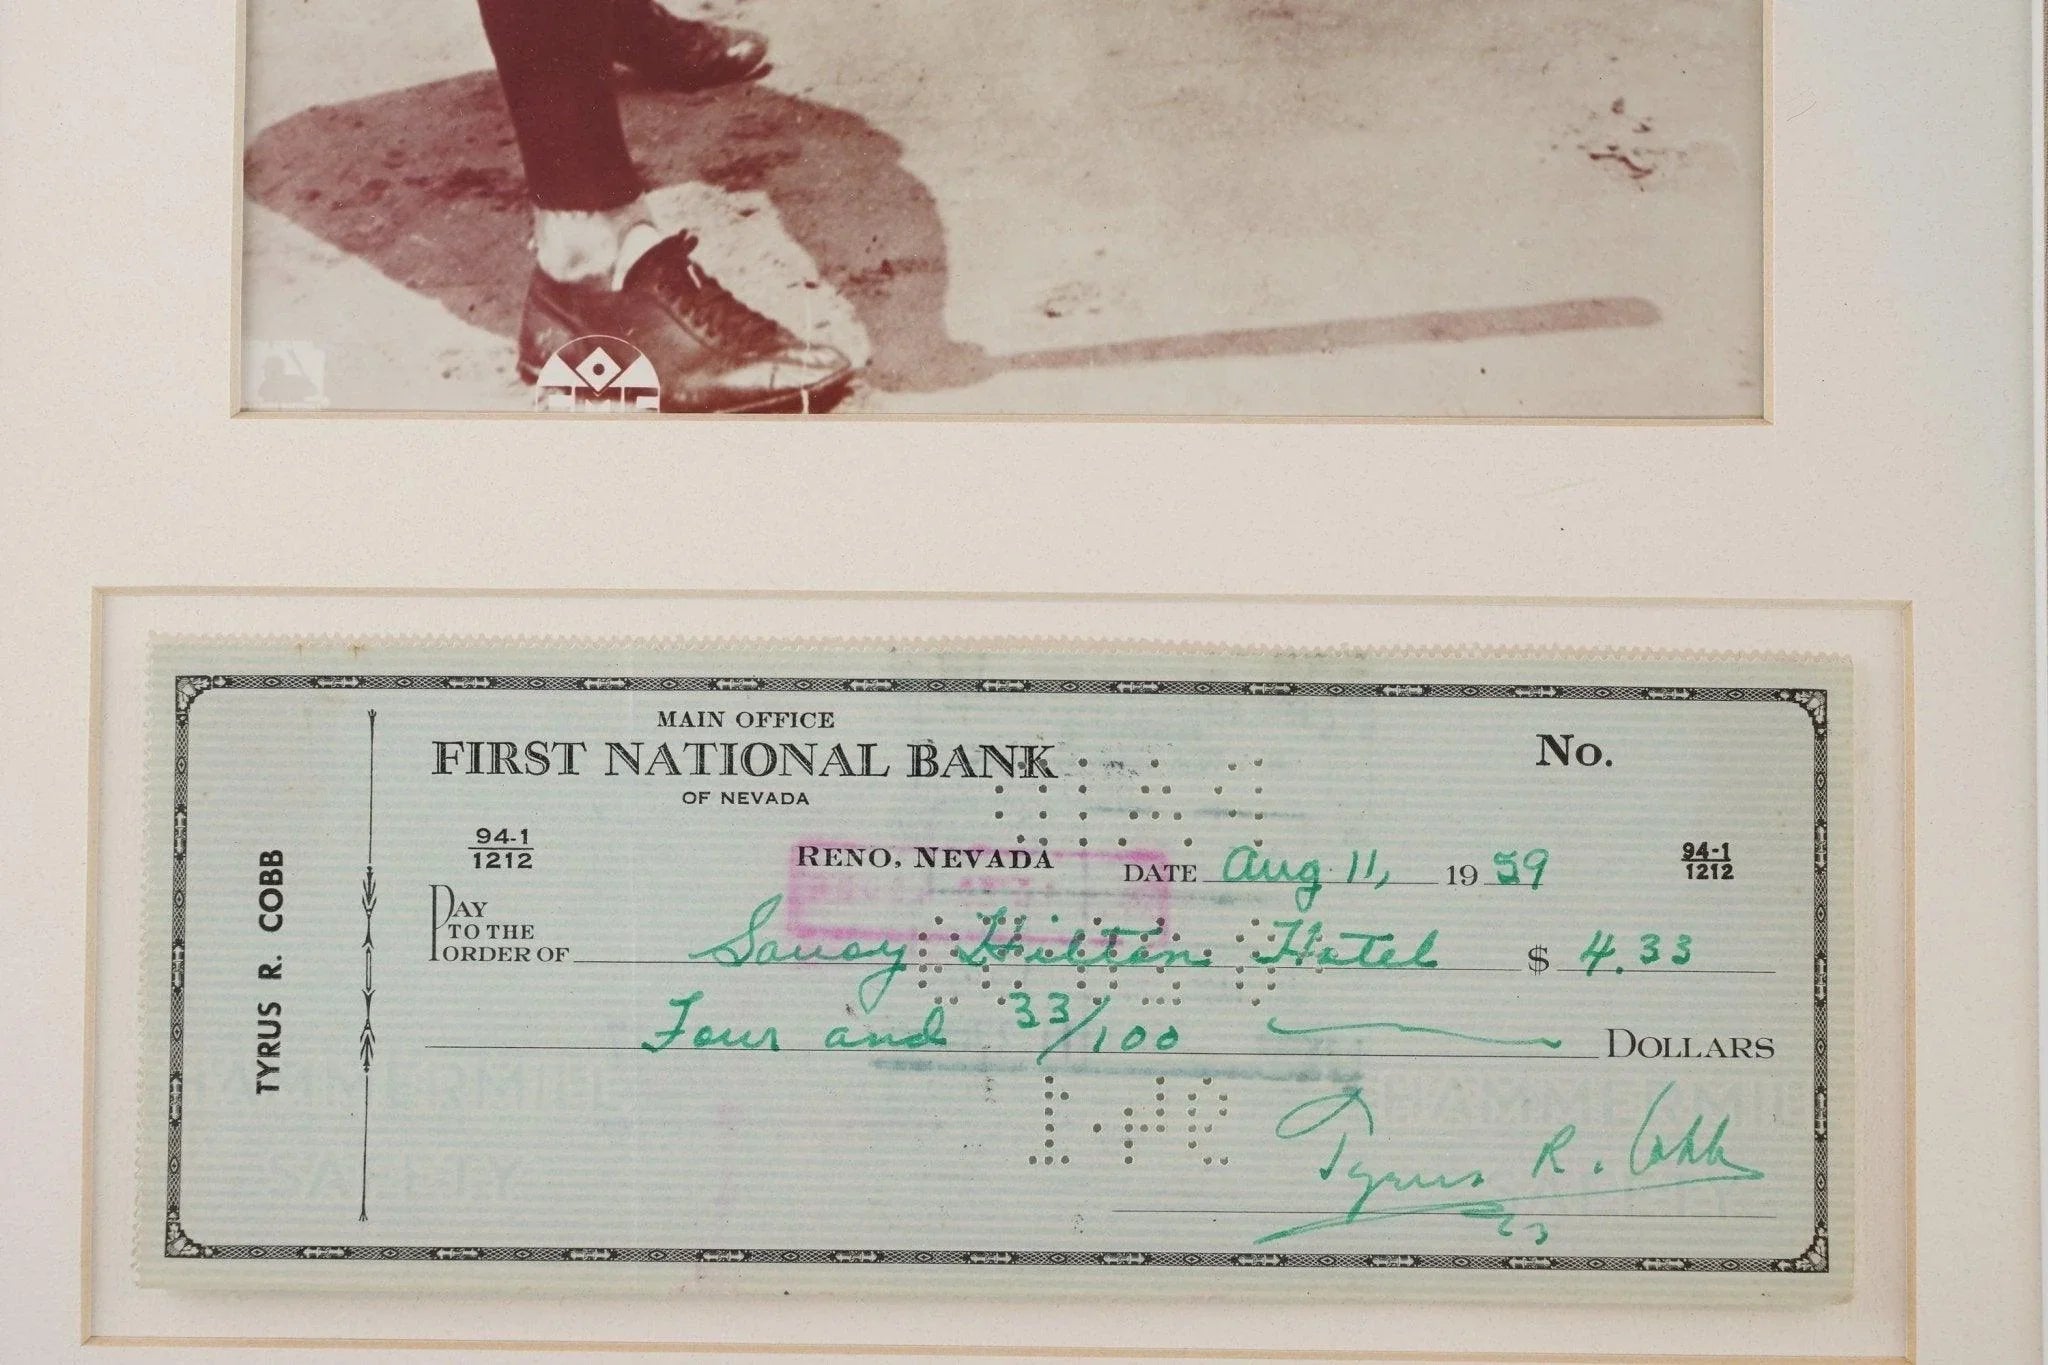 MAIN OFFICE
FIRST NATIONAL BANK
OF NEVADA
No.
94-1
1212
RENO, NEVADA
DATE Aug 11, 1959
94-1
1212
PAY TO THE ORDER OF Savoy Hilton Hotel $ 4.33
Four and 33/100 DOLLARS
TYRUS R. COBB
HAMMERMILL
SAFETY
HAMMERMILL
Tyrus R. Cobb
23